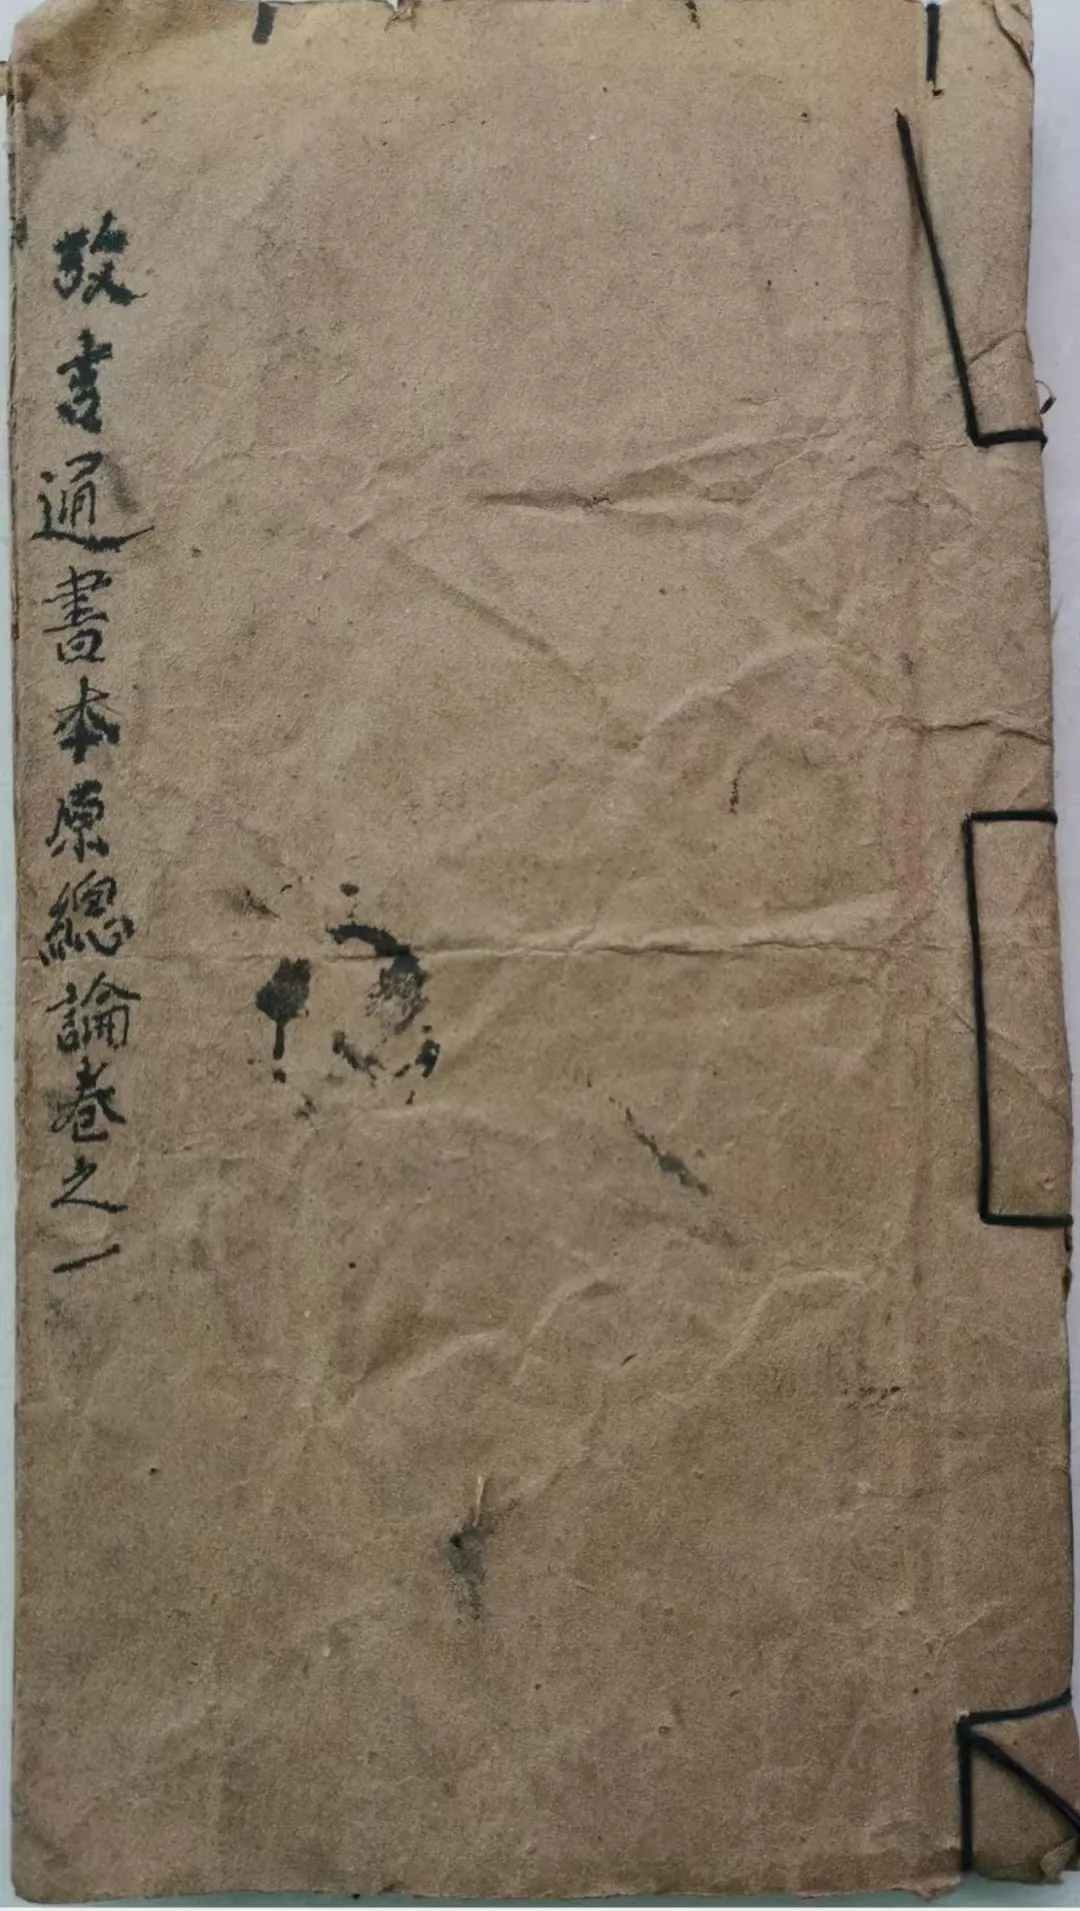 通書本原總論卷之一